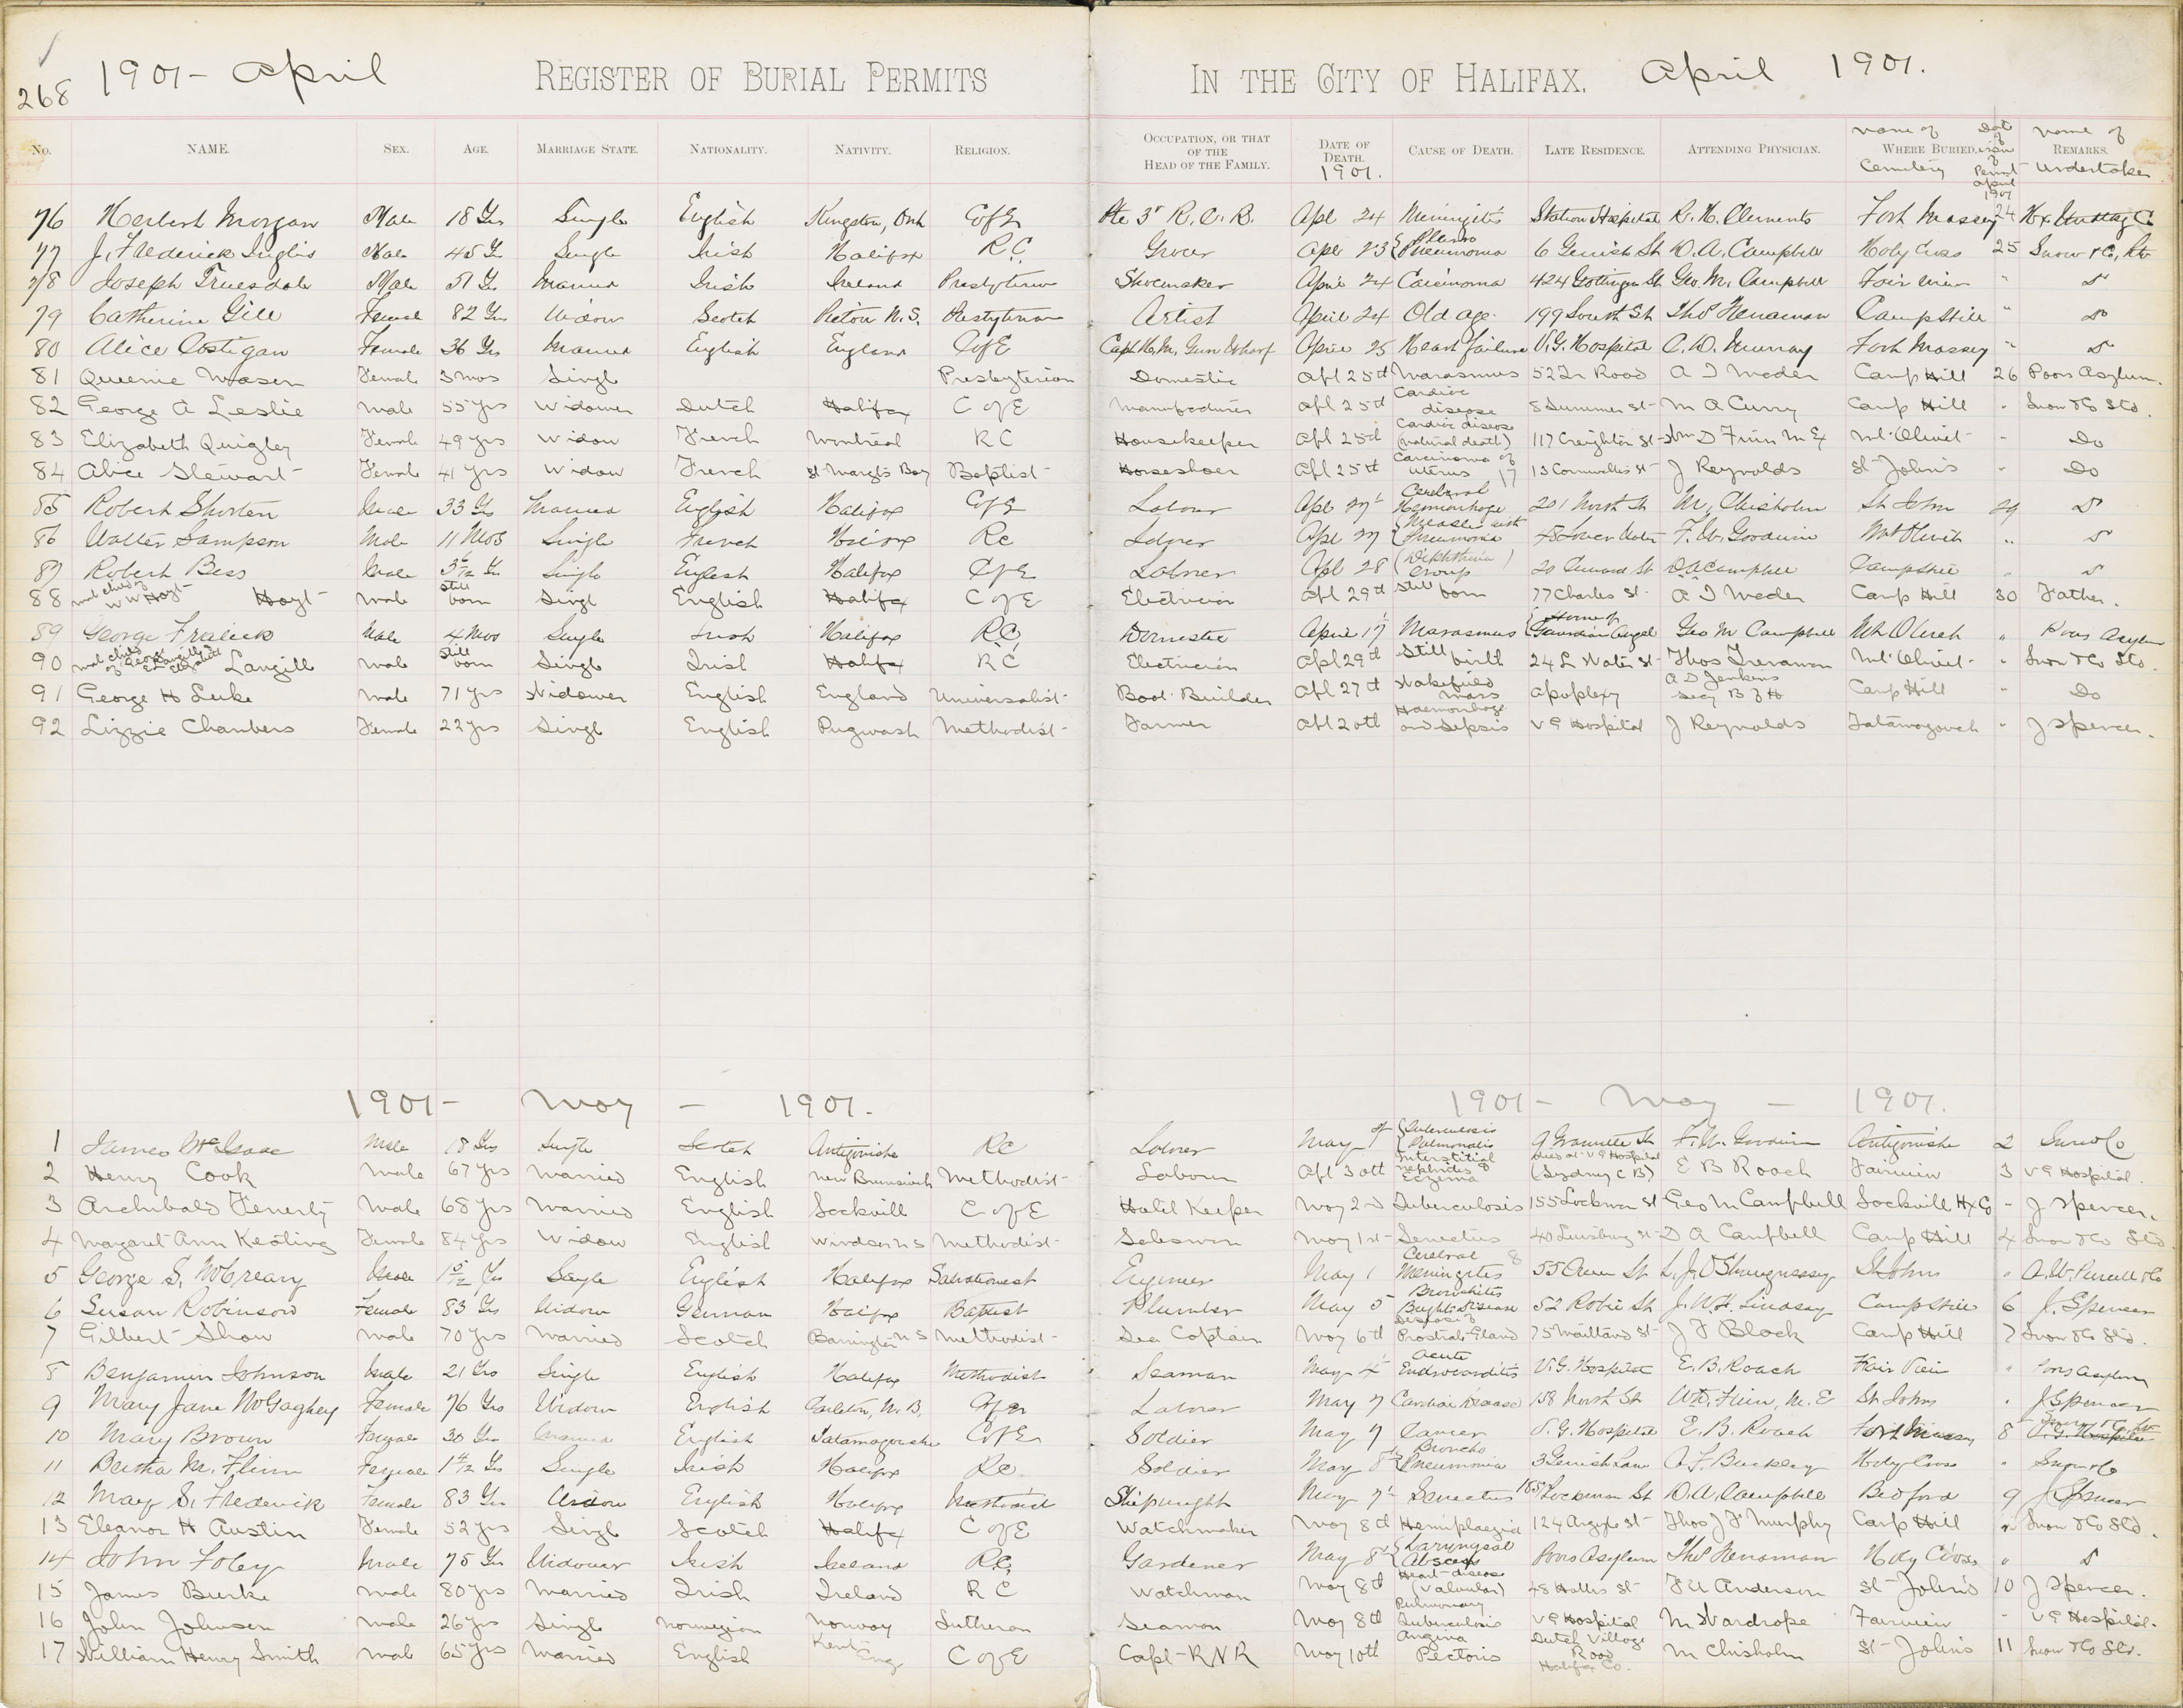 268 1901 - April REGISTER OF BURIAL PERMITS IN THE CITY OF HALIFAX. April 1901.
No. NAME. SEX. AGE. MARRIAGE STATE. NATIONALITY. NATIVITY. RELIGION. OCCUPATION, OR THAT OF THE HEAD OF THE FAMILY. DATE OF DEATH. 1901. CAUSE OF DEATH. LATE RESIDENCE. ATTENDING PHYSICIAN. Name of WHERE BURIED. Cemetery Date of issue of Permit April 1901 Name of REMARKS. Undertaker
76 Herbert Morgan Male 18 Yrs Single English Kingston, Ont C of E Pte 3r R.C.R. Apl 24 Meningitis Station Hospital R. H. Clements Fort Massey 24
77 J. Frederick Inglis Male 45 Yrs Single Irish Halifax R.C. Grocer Apl 23 Pneumonia 6 Gerrish St D. A. Campbell Holy Cross 25 Snow & Co,
78 Joseph Truesdale Male 51 Yrs Married Irish Ireland Presbyterian Shoemaker April 24 Carcinoma 424 Gottingen St Geo. M. Campbell Fair view " Do
79 Catherine Gill Female 82 Yrs Widow Scotch Pictou N.S. Presbyterian Artist April 24 Old age 199 South St Thos Trenaman Camp Hill " Do
80 Alice Costigan Female 36 Yrs Married English England C of E Capt H.M. Gun Wharf April 25 Heart failure V.G. Hospital C. D. Murray Fort Massey " Do
81 Queenie Mason Female 3 mos Single Presbyterian Domestic Apl 25th Marasmus Road A I Mader Camp Hill 26 Poors Asylum.
82 George A Leslie Male 55 yrs Widower Dutch Halifax C of E Manufacturer Apl 25th Cardiac disease 8 Summer St M A Curry Camp Hill " Snow & Co Ltd.
83 Elizabeth Quigley Female 49 yrs Widow French Montreal R C Housekeeper Apl 25th Cardiac disease (natural death) 117 Creighton St Wm D Finn M E Mt Olivet " Do
84 Alice Stewart Female 41 yrs Widow French St Margts Bay Baptist Horseshoer Apl 25th Carcinoma of uterus 17 13 Cornwallis St J Reynolds St John's " Do
85 Robert Shorten Male 33 Yrs Married English Halifax C of E Laborer Apl 27 Cerebral Hemorrhage 201 North St M. Chisholm St John 29 Do
86 Walter Sampson Male 11 Mos Single French Halifax Rc Laborer Apl 27 Measles with Pneumonia Lower Water F. W. Goodwin Mt Olivet " Do
87 Robert Bess Male Single English Halifax C of E Laborer Apl 28 (Diphtheria) Croup 20 Cunard St D A Campbell Camp Hill " Do
88 male child of W W Hoyt Hoyt Male Still born Single English Halifax C of E Electrician Apl 29th Still born 77 Charles St A I Mader Camp Hill 30 Father.
89 George Fralick Male 4 Mos Single Irish Halifax RC Domestic April 17 Marasmus Home of Guardian Angel Geo M Campbell Mt Olivet " Poors Asylum
90 male child of George Langille & Langill Male Still born Single Irish Halifax R C Electrician Apl 29th Still birth 24 L Water St Thos Trenaman Mt Olivet " Snow & Co Ltd.
91 George H Luke Male 71 yrs Widower English England Universalist Boat Builder Apl 27th Wakefield Mass apoplexy A D Jenkins Secy B of H Camp Hill " Do
92 Lizzie Chambers Female 22 yrs Single English Pugwash Methodist Farmer Apl 20th Haemorrhage and Sepsis V G Hospital J Reynolds Tatamagouch " J Spencer.
1901 - May - 1901. 1901 - May - 1901.
1 James McIsaac Male 18 Yrs Single Scotch Antigonishe Rc Laborer May 1st Tuberculosis Pulmonalis 9 Granville St F. W. Goodwin Antigonishe 2 Snow & Co
2 Henry Cook Male 67 yrs Married English New Brunswick Methodist Laborer Apl 30th Interstitial nephrites & Eczema died at V G Hospital (Sydney C B) E B Roach Fairview 3 V G Hospital.
3 Archibald Fenerty Male 68 yrs Married English Sackvill C of E Hotel Keeper May 2nd Tuberculosis 155 Lockman St Geo M Campbell Sackvill Hx Co " J Spencer.
4 Margaret Ann Keating Female 84 yrs Widow English Windsor N S Methodist Salesman May 1st Senectus 40 Louisburg St D A Campbell Camp Hill 4 Snow & Co Ltd
5 George S. McCreary Male 1 5/12 Yrs Single English Halifax Salvationist Engineer May 1 Cerebral Meningites 8 55 Creen St L. J. O'Shaugnessy St Johns " A. W. Purcell & Co
6 Susan Robinson Female 83 Yrs Widow German Halifax Baptist Plumber May 5 Bronchites Brights Disease 52 Robie St J. W. H. Lindsay Camp Hill 6 J. Spencer
7 Gilbert Shaw Male 70 yrs Married Scotch Barrington N S Methodist Sea Captain May 6th Disease of Prostrate Gland 75 Maitland St J F Black Camp Hill 7 Snow & Co Ltd.
8 Benjamin Johnson Male 21 Yrs Single English Halifax Methodist Seaman May 4 Acute Endrocarditis V. G. Hospital E. B. Roach Fair View " Poors Asylum
9 Mary Jane McGaghey Female 76 Yrs Widow English Carleton, N.B. C of E Laborer May 7 Cardiac Disease 158 North St W. D. Finn, M. E St Johns " J Spencer
10 Mary Brown Female 30 Yrs Married English Tatamagouche C of E Soldier May 7 Cancer V. G. Hospital E. B. Roach Fort Massey 8 Snow & Co Ltd V. G. Hospital
11 Bertha M. Flinn Female Single Irish Halifax Rc. Soldier May 8th Broncho Pneumonia 3 Gerrish Lane A. F. Buckley Holy Cross " Snow & Co
12 Mary S. Frederick Female 83 Yrs Widow English Halifax Methodist Shipwright May 7th Senectus Lockman St D. A. Campbell Bedford 9 J Spencer
13 Eleanor H Austin Female 52 yrs Single Scotch Halifax C of E Watchmaker May 8th Hemiplaegia 124 Argyle St Thos J F Murphy Camp Hill " Snow & Co Ltd.
14 John Foley Male 75 Yrs Widower Irish Ireland Rc. Gardener May 8th Laryngeal Abscess Poors Asylum Thos Trenaman Holy Cross " Do
15 James Burke Male 80 yrs Married Irish Ireland R C Watchman May 8th Heart disease (Valvular) 48 Hollis St F U Anderson St John's 10 J Spencer.
16 John Johnsen Male 26 yrs Single Norwegian Norway Lutheran Seaman May 8th Pulmonary Tuberculosis V G Hospital M Wardrope Fairview " V G Hospital.
17 William Henry Smith Male 65 yrs Married English Kent Eng C of E Capt - R N R May 10th Angina Pectoris Dutch Village Road Halifax Co. M Chisholm St John's 11 Snow & Co Ltd.